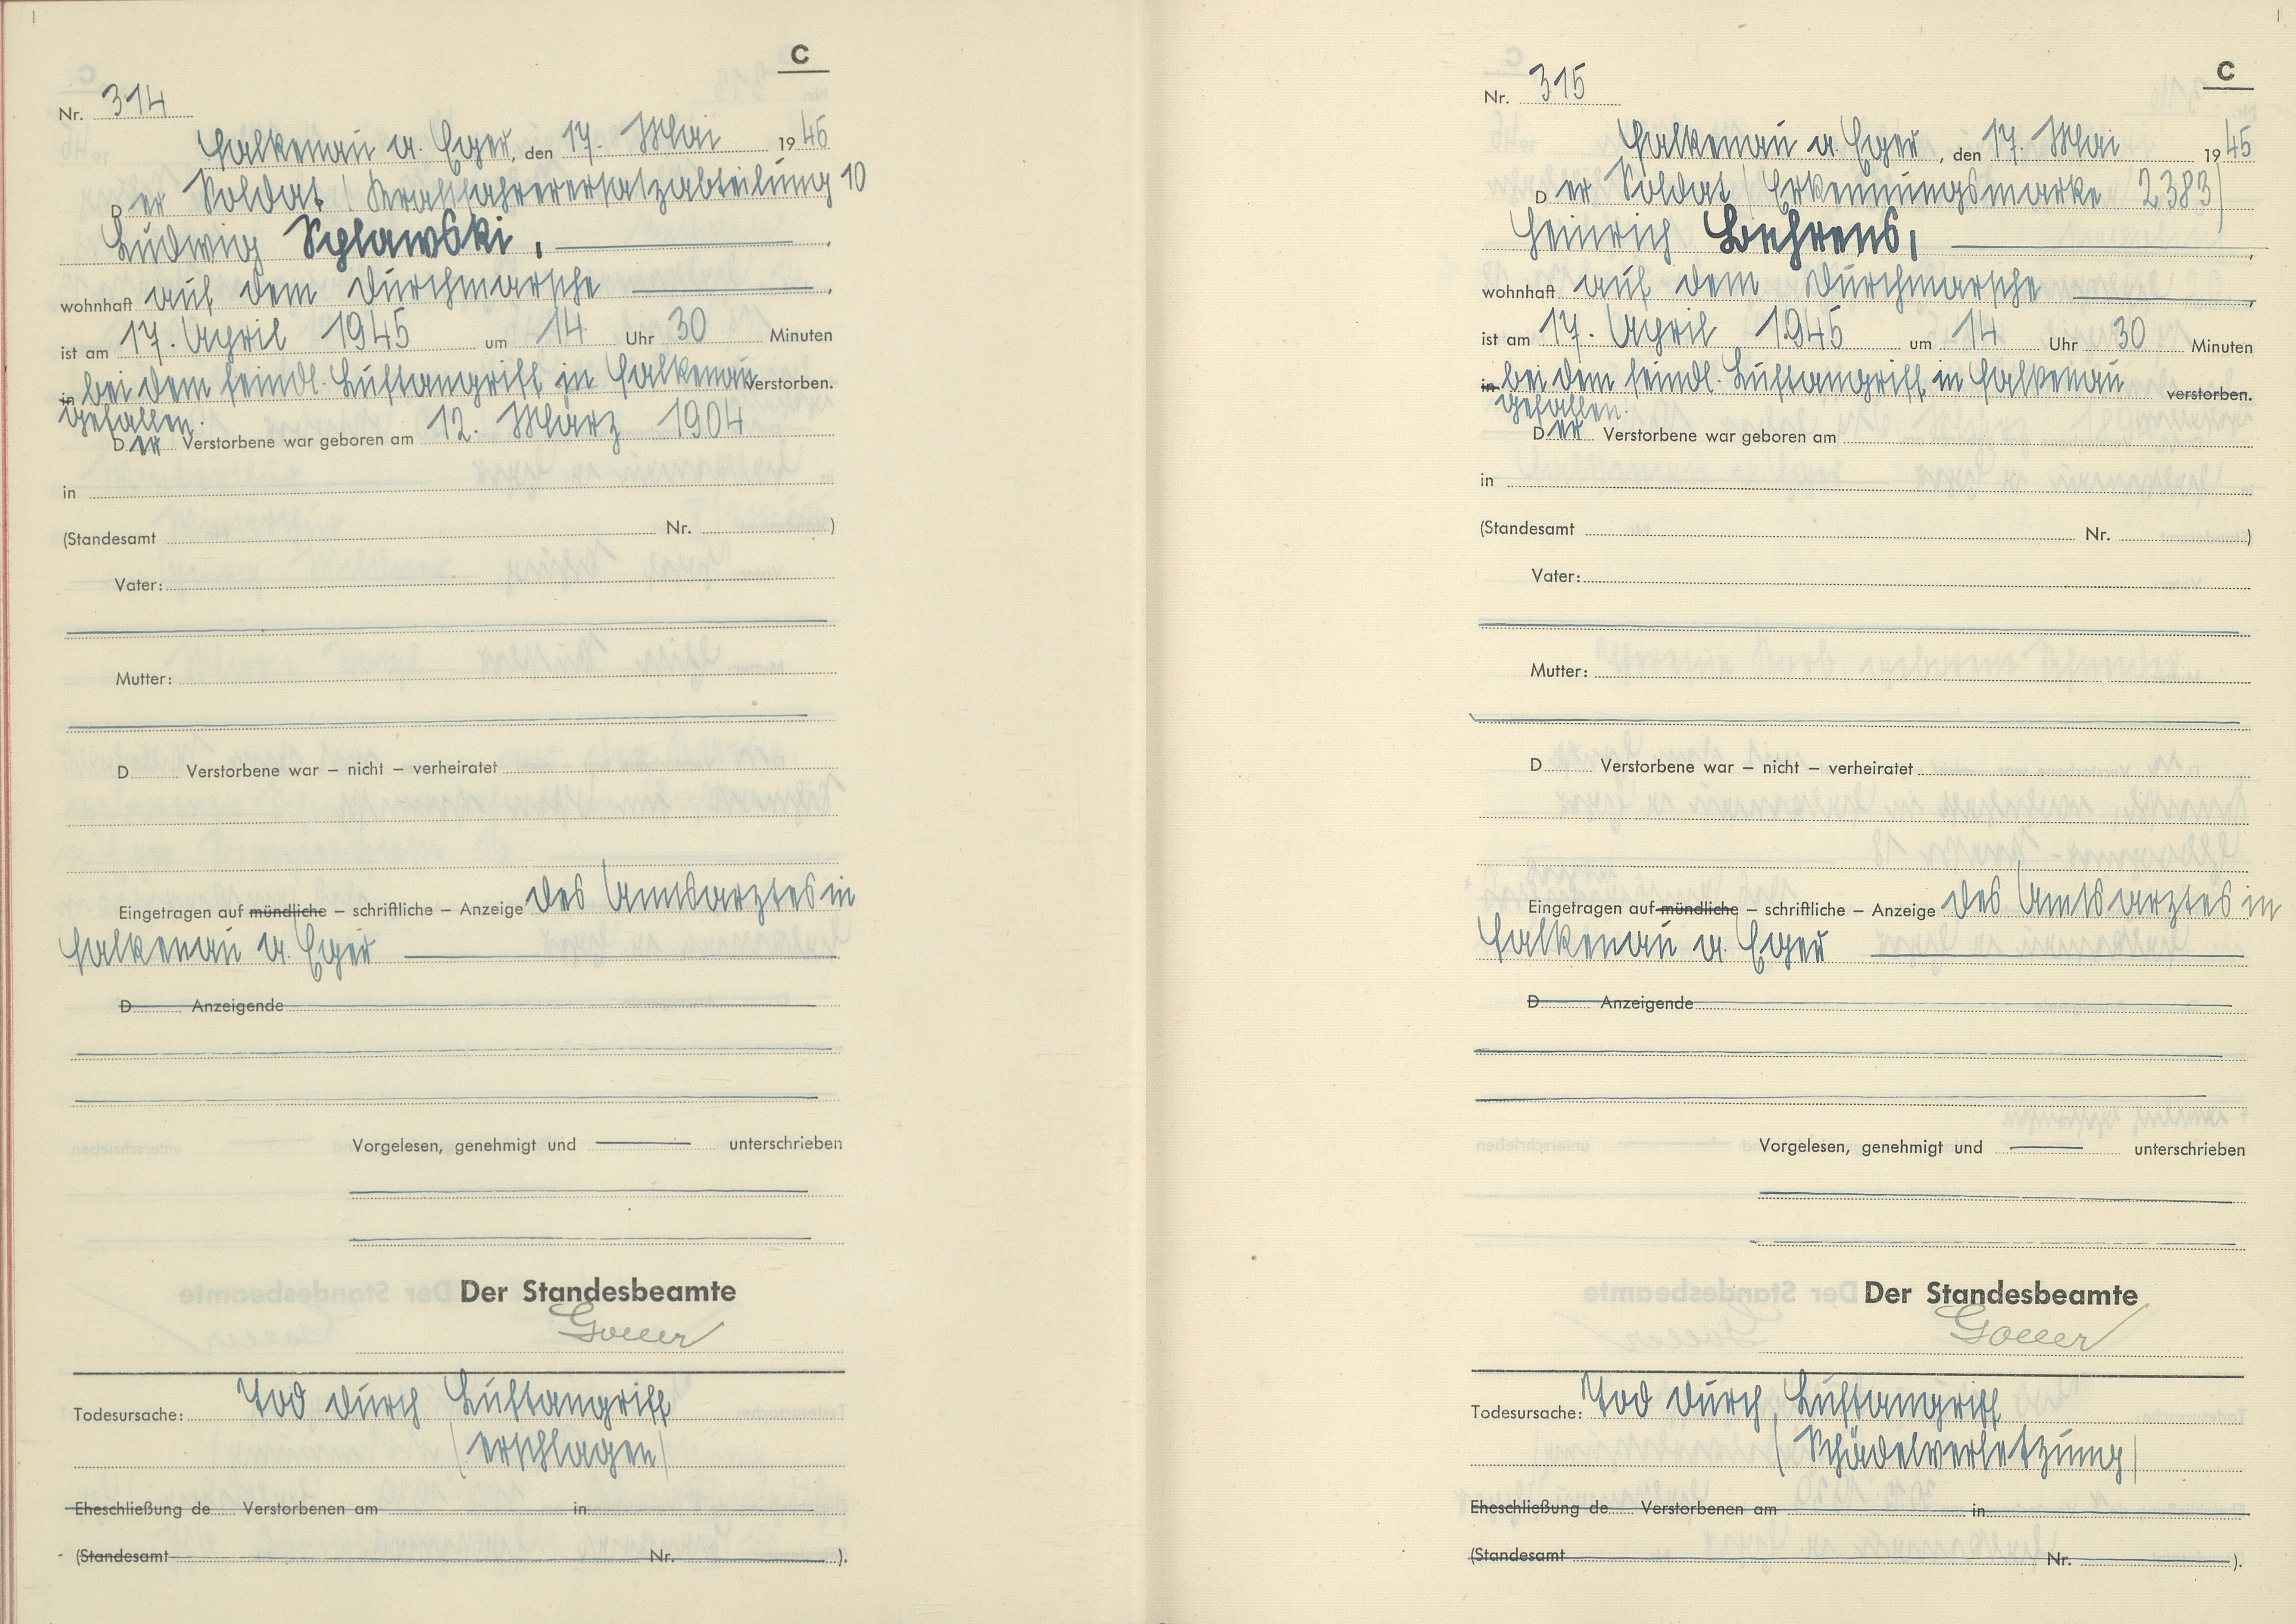 C
Nr. 314
Falkenau a. Eger, den 17. Mai 1945
Der Soldat (Kraftfahrerersatzabteilung 10
Ludwig Sylawski,
wohnhaft auf dem Durchmarsche
ist am 17. April 1945 um 14 Uhr 30 Minuten
in bei dem feindl. Luftangriff in Falkenau verstorben.
gefallen.
Der Verstorbene war geboren am 12. März 1904
in
(Standesamt Nr. )
Vater:
Mutter:
D Verstorbene war – nicht – verheiratet
Eingetragen auf mündliche – schriftliche – Anzeige des Amtsarztes in
Falkenau a. Eger
D Anzeigende
Vorgelesen, genehmigt und unterschrieben
Der Standesbeamte
Todesursache: Tod durch Luftangriff
(erschlagen)
Eheschließung de Verstorbenen am in
(Standesamt Nr. ).
C
Nr. 315
Falkenau a. Eger, den 17. Mai 1945
Der Soldat (Erkennungsmarke 2383)
Heinrich Behrens,
wohnhaft auf dem Durchmarsche
ist am 17. April 1945 um 14 Uhr 30 Minuten
in bei dem feindl. Luftangriff in Falkenau verstorben.
gefallen.
Der Verstorbene war geboren am
in
(Standesamt Nr. )
Vater:
Mutter:
D Verstorbene war – nicht – verheiratet
Eingetragen auf mündliche – schriftliche – Anzeige des Amtsarztes in
Falkenau a. Eger
D Anzeigende
Vorgelesen, genehmigt und unterschrieben
Der Standesbeamte
Todesursache: Tod durch Luftangriff
(Schädelverletzung)
Eheschließung de Verstorbenen am in
(Standesamt Nr. ).